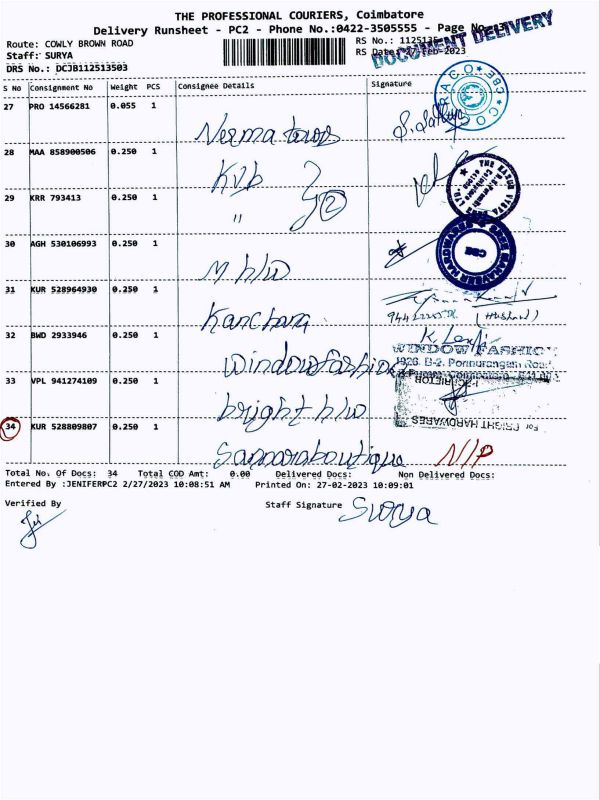 THE PROFESSIONAL COURIERS, Coimbatore
Delivery Runsheet - PC2 - Phone No.:0422-3505555 - Page No.
Route: COWLY BROWN ROAD
RS No.:
Staff: SURYA
RS Date: 27-Feb-2023
DRS No.: DCJB112513503
DOCUMENT DELIVERY
S No Consignment No Weight PCS Consignee Details Signature
27 PRO 14566281 0.055 1
28 MAA 858900506 0.250 1
KVB
29 KRR 793413 0.250 1
" 2
30 AGH 530106993 0.250 1
M h/w
31 KUR 528964930 0.250 1
Kanchana
(Husband)
32 BWD 2933946 0.250 1
Windowfashion
WINDOW FASHION
33 VPL 941274109 0.250 1
bright h/w
For BRIGHT HARDWARES
PROPRIETOR
34 KUR 528809807 0.250 1
N/P
Total No. Of Docs: 34 Total COD Amt: 0.00 Delivered Docs: Non Delivered Docs:
Entered By :JENIFERPC2 2/27/2023 10:08:51 AM Printed On: 27-02-2023 10:09:01
Verified By
Staff Signature Surya